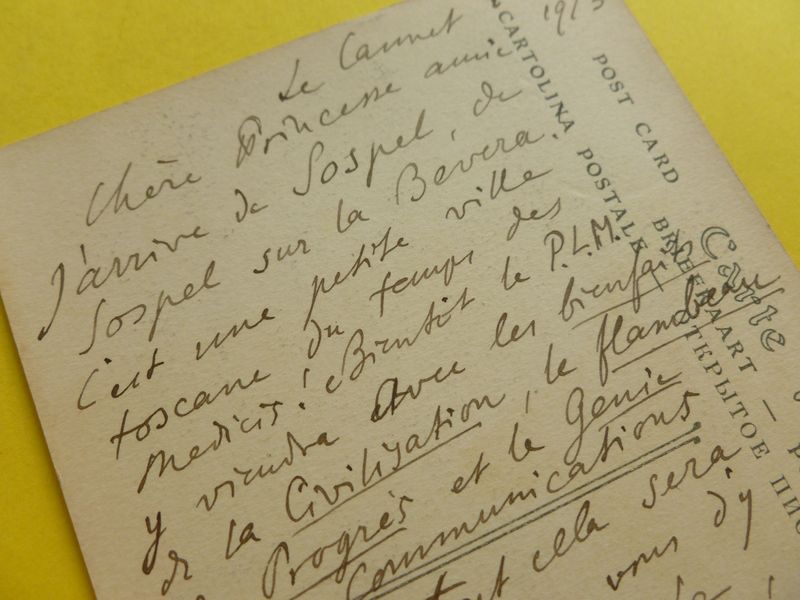 Le Cannet 191
Chère Princesse amie
J'arrive de Sospel, de
Sospel sur la Bevera.
C'est une petite ville
toscane du temps des
Medicis! Bientôt le P.L.M.
y viendra avec les bienfaits
de la Civilization, le flambeau
Progrès et le Génie
Communications
cela sera
vous d'y
CARTOLINA POSTALE
POST CARD
BRIEFKAART
ТКРЫТОЕ ПИС
Carte